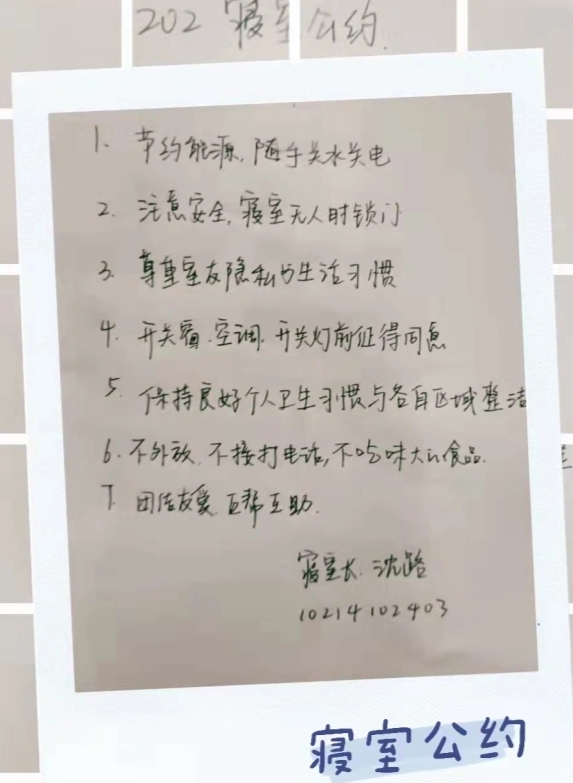 202 寝室公约.
1. 节约能源,随手关水关电
2. 注意安全,寝室无人时锁门
3. 尊重室友隐私与生活习惯
4. 开关窗.空调.开关灯前征得同意
5. 保持良好个人卫生习惯与各自区域整洁
6. 不外放.不接打电话,不吃味大的食品.
7. 团结友爱.互帮互助.
寝室长.沈路
10214102403
寝室公约